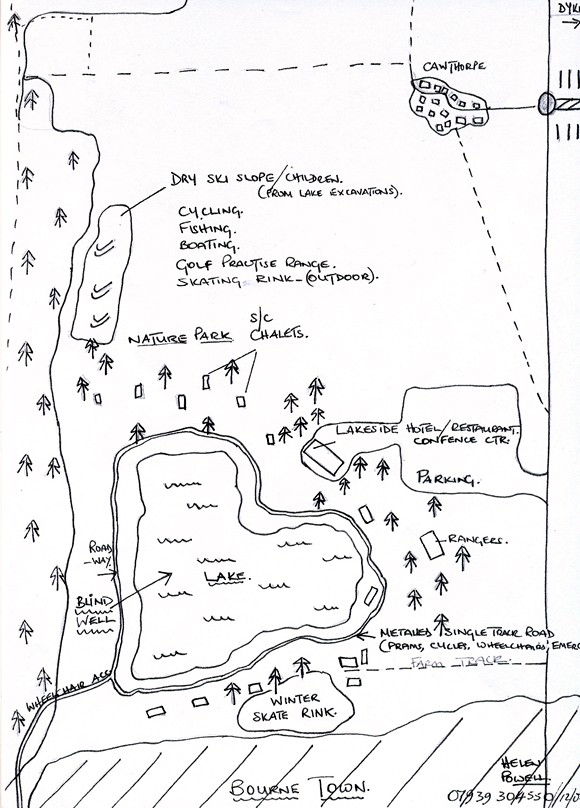 DYKE
CAWTHORPE
DRY SKI SLOPE/CHILDREN.
(FROM LAKE EXCAVATIONS).
CYCLING.
FISHING.
BOATING.
GOLF PRACTISE RANGE.
SKATING RINK-(OUTDOOR).
S/C
NATURE PARK CHALETS.
LAKESIDE HOTEL/RESTAURANT.
CONFENCE CTR.
PARKING.
RANGERS.
ROAD
-WAY.
LAKE.
BLIND
WELL
METALLED SINGLE TRACK ROAD
(PRAMS, CYCLES, WHEELCHAIRS, EMERG
FARM TRACK.
WHEELCHAIR ACC
WINTER
SKATE RINK.
HELEN
POWELL
BOURNE TOWN.
07939 304550